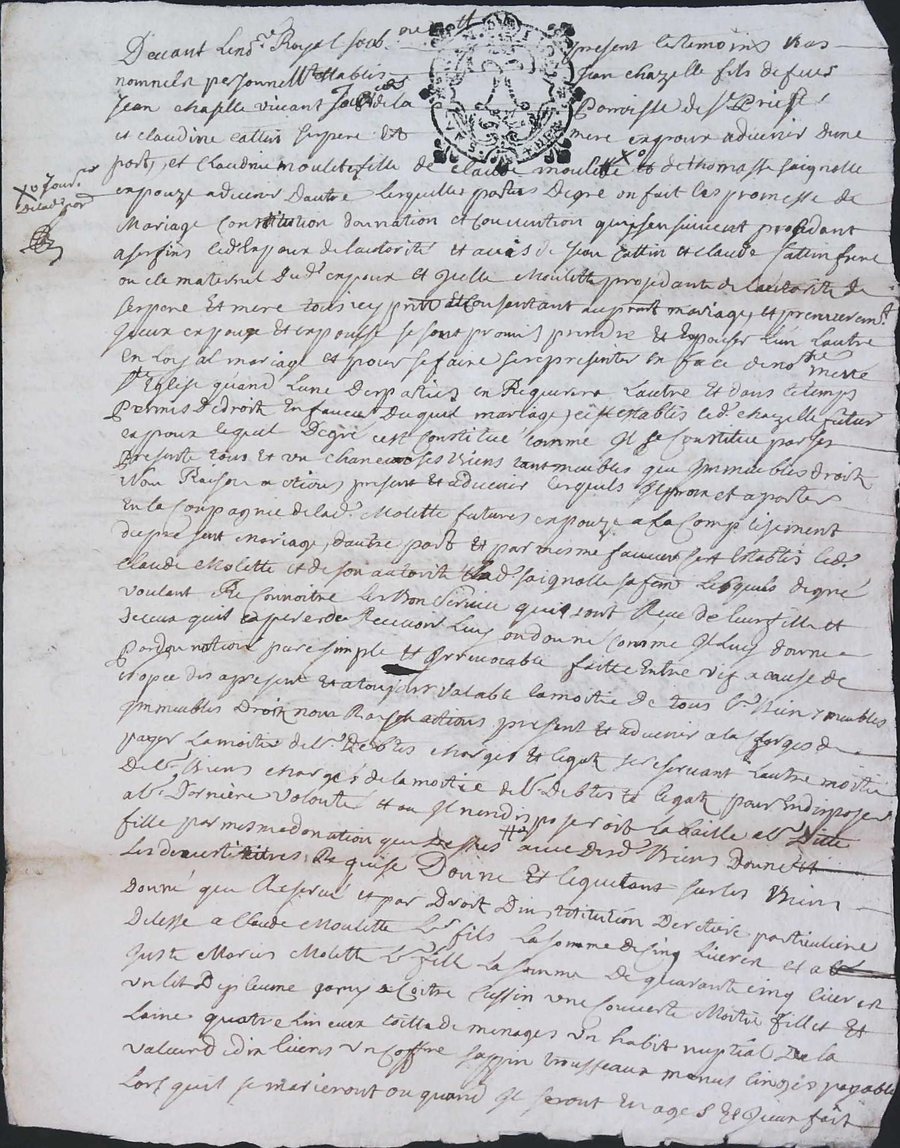 Devant Le no.re Royal soub.ne et present les temoins bas
nommes personnell.t Establis Jean chazelle fils de feus
Jean chaselle vivant de la Parroisse de s.t Priest
et claudine cattin ses pere et mere espoux advenir dune
part, et Claudine moulette fille de claude moulitte Xo et de thomasse saignolle
Xo Jour.r
de lad. par.
espouze advenir dautre Lesquelles parties Degré on fait Les promesse de
Mariage Constitution donnation et Convention qui sensuivent procedant
a ses fins led. Espoux de lautorité et avis de Jean Cattin et claude Cattin frere
oncle maternel Dud. espoux et Icelle Moulette procedante de Lautorité de
ses pere Et mere tous icy p.nt et Consantant au p.nt mariage, et premierem.t
Iceux espoux Et espouse se sont promis prendre Et Espouser L'un Lautre
En Loyal mariage et pour se faire se representer En face de no.re mere
s.te Eglise quand Lune Des parties en Requerera Lautre Et dans le temps
Permis De droit En faveur Duquel mariage, c'est establis led. chazelle futur
espoux lequel Degré cest Constitué comme Il se Constitue par ses
presente tous Et un chacun ses Biens tant meubles que Immeubles droit
Nom Raison actions present Et advenir lesquels Il promet aporter
En la Compagnie de lad. Molette future espouze a la Complissement
du present mariage, dautre part Et par mesme faveur s'est Establis led.
Claude Molette et de son autorité lad. saignolle sa feme Lesquels degré
voulant Reconnoitre Les Bon Service quils ont Reçue de leur fille et
de ceux quil espere de Recevoir Luy on donne Comme Il Luy donne
Par donnation pure simple et Irrevocable faitte Entre vif a cause de
nopce des apresent Et a toujours valable la moitié de tous L.r Biens meubles
Immeubles Droit nom Raison actions present et advenir a la charges de
payer La moitié de L.r Debtes charges Et legat se reservant Lautre moitié
De L.r Biens chargés de la moitié de L.r Debtes et legat pour En disposer
a L.r Derniere volonté et ou Il nen disposeroit la baille a L.r ditte
fille par mesme donation que dessus avec Desd. Biens Donne
Les devertitures Requise Donne Et lequetant sur les Biens
Donné que Reservé et par Droit Dinstitution Dheretiere particuliere
Delesse a Claude Moulette L.r fils La somme de Cinq Livres et a
Juste Maries Molette L.r fille La somme De quarante cinq livres
un lit De plume garny de Coitre Cussin une Couverte Moitié fillet Et
Laine quatre linceux toille de menages un habit nuptial De la
valeur de dix livres un Coffre sappin trousseaux menus linges payable
Lors quil se marieront ou quand Il seront En ages Et Jceux fait